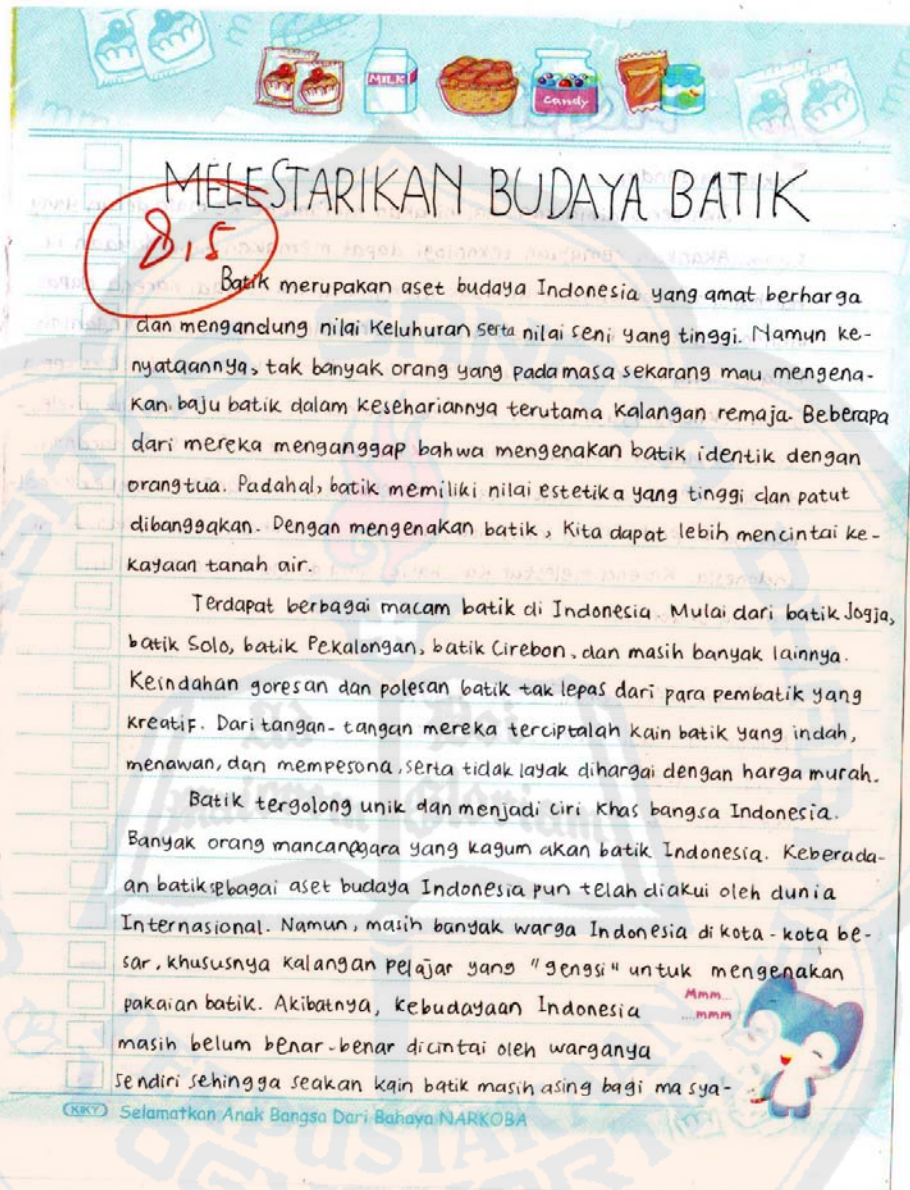 MILK
Candy
MELESTARIKAN BUDAYA BATIK
8,5
Batik merupakan aset budaya Indonesia yang amat berharga
dan mengandung nilai keluhuran serta nilai seni yang tinggi. Namun ke-
nyataannya, tak banyak orang yang pada masa sekarang mau mengena-
kan baju batik dalam kesehariannya terutama kalangan remaja. Beberapa
dari mereka menganggap bahwa mengenakan batik identik dengan
orangtua. Padahal, batik memiliki nilai estetika yang tinggi dan patut
dibanggakan. Dengan mengenakan batik, kita dapat lebih mencintai ke-
kayaan tanah air.
Terdapat berbagai macam batik di Indonesia. Mulai dari batik Jogja,
batik Solo, batik Pekalongan, batik Cirebon, dan masih banyak lainnya.
Keindahan goresan dan polesan batik tak lepas dari para pembatik yang
kreatif. Dari tangan-tangan mereka terciptalah kain batik yang indah,
menawan, dan mempesona, serta tidak layak dihargai dengan harga murah.
Batik tergolong unik dan menjadi ciri khas bangsa Indonesia.
Banyak orang mancanegara yang kagum akan batik Indonesia. Keberada-
an batik sebagai aset budaya Indonesia pun telah diakui oleh dunia
Internasional. Namun, masih banyak warga Indonesia di kota-kota be-
sar, khususnya kalangan pelajar yang "gengsi" untuk mengenakan
pakaian batik. Akibatnya, kebudayaan Indonesia
Mmm...
...mmm
masih belum benar-benar dicintai oleh warganya
sendiri sehingga seakan kain batik masih asing bagi masya-
KIKY Selamatkan Anak Bangsa Dari Bahaya NARKOBA